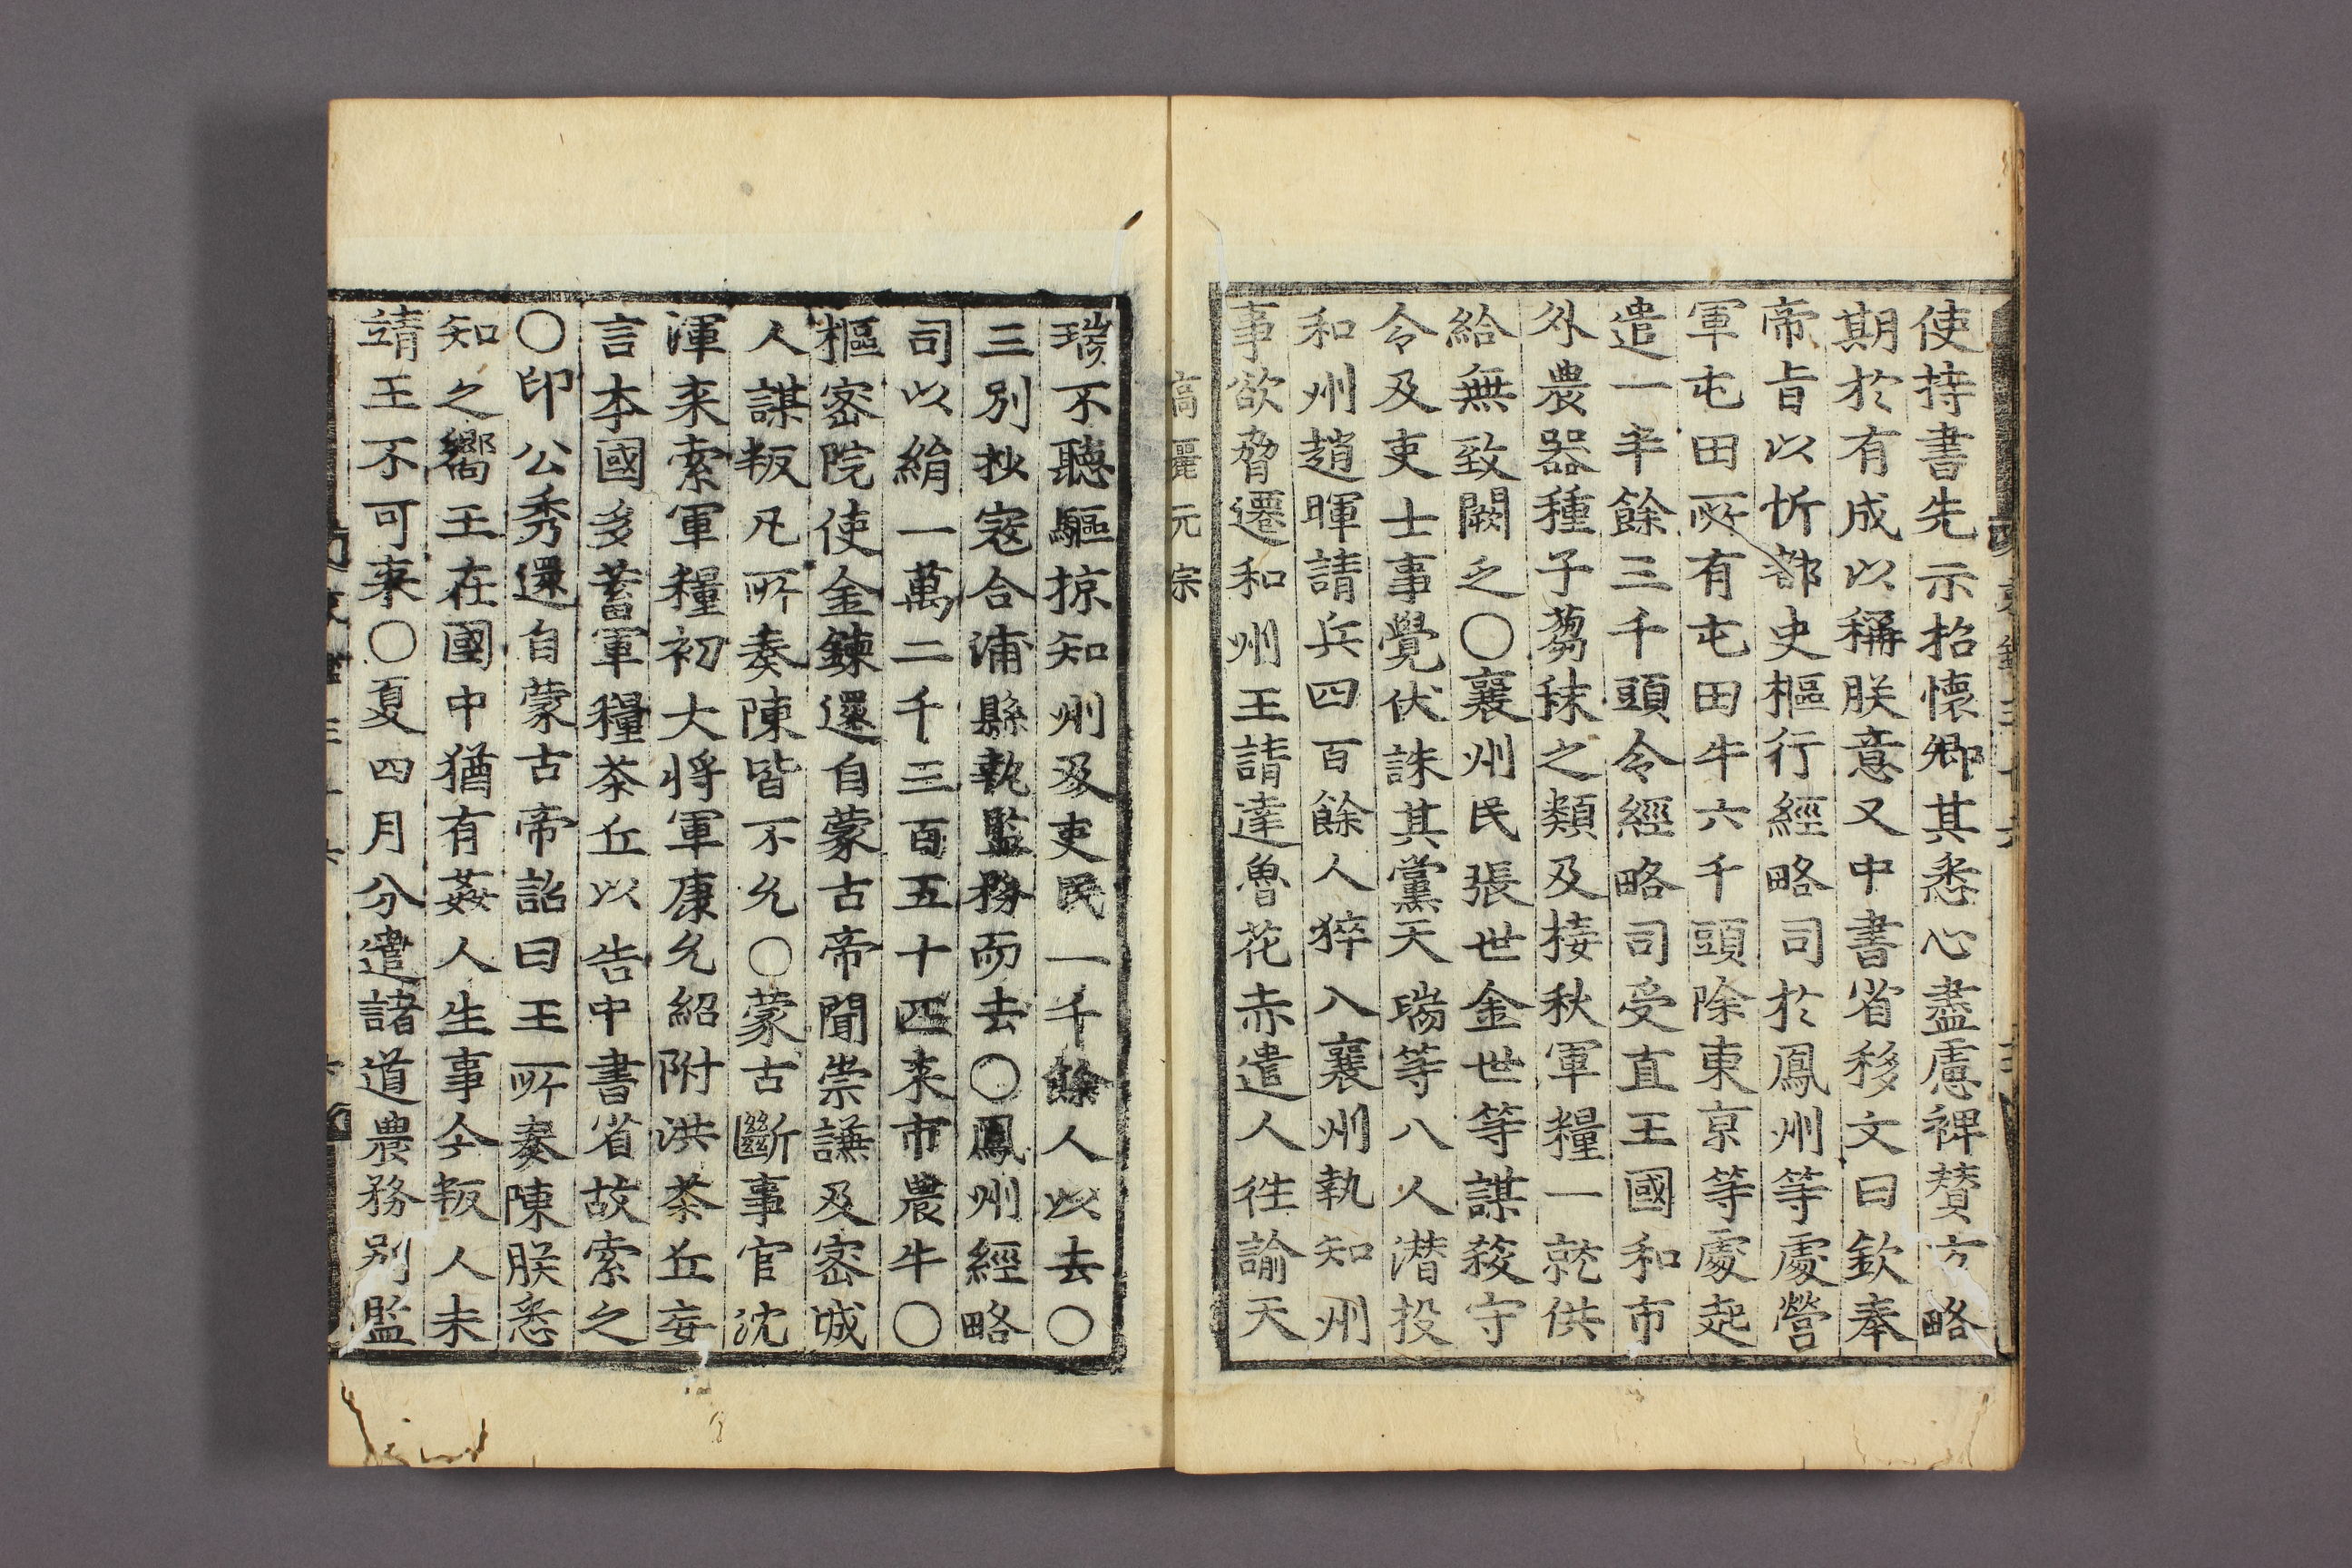 使持書先示招懷卿其悉心盡慮裨賛方略
期於有成以稱朕意又中書省移文曰欽奉
帝旨以忻都史樞行經略司於鳳州等處營
軍屯田所有屯田牛六千頭除東京等處起
遣一半餘三千頭令經略司受直王國和市
外農器種子蒭秣之類及接秋軍糧一就供
給無致闕乏○襄州民張世金世等謀殺守
令及吏士事覺伏誅其黨天瑞等八人潛投
和州趙暉請兵四百餘人猝入襄州執知州
事欲脅遷和州王請達魯花赤遣人徃諭天
高麗元宗
瑞不聽驅掠知州及吏民一千餘人以去○
三別抄寇合浦縣執監務而去○鳳州經略
司以絹一萬二千三百五十匹来市農牛○
樞密院使金鍊還自蒙古帝聞崇謙及密城
人謀叛凡所奏陳皆不允○蒙古斷事官沈
渾来索軍糧初大将軍康允紹附洪茶丘妄
言本國多蓄軍糧茶丘以告中書省故索之
○印公秀還自蒙古帝詔曰王所奏陳朕悉
知之嚮王在國中猶有姦人生事今叛人未
靖王不可来○夏四月分遣諸道農務別監